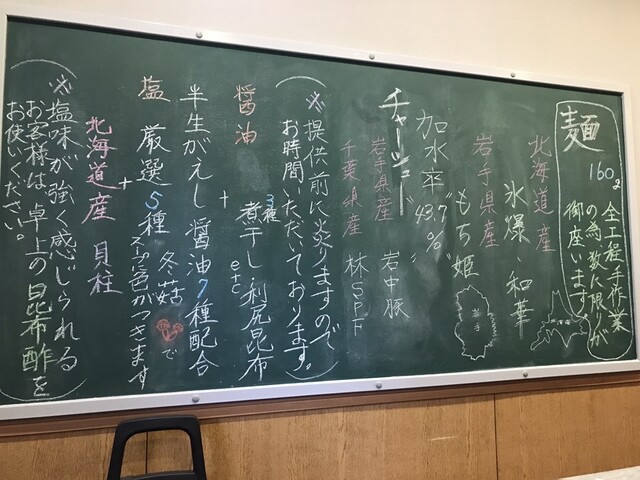 麺 160g
全工程手作業
の為数に限りが
御座います
北海道産
氷爆、和華
岩手県産
もち姫
岩手
北海道
加水率 "43.7%"
チャーシュー
岩手県産 岩中豚
千葉県産 林SPF
(※提供前に炙りますので
お時間いただいております。)
醤油 煮干し 利尻昆布
3種
etc
+
半生がえし醤油7種配合
塩 厳選5種 冬菇で
スープに色がつきます
+
北海道産 貝柱
(※塩味が強く感じられる
お客様は、卓上の昆布酢を
お使いください。)